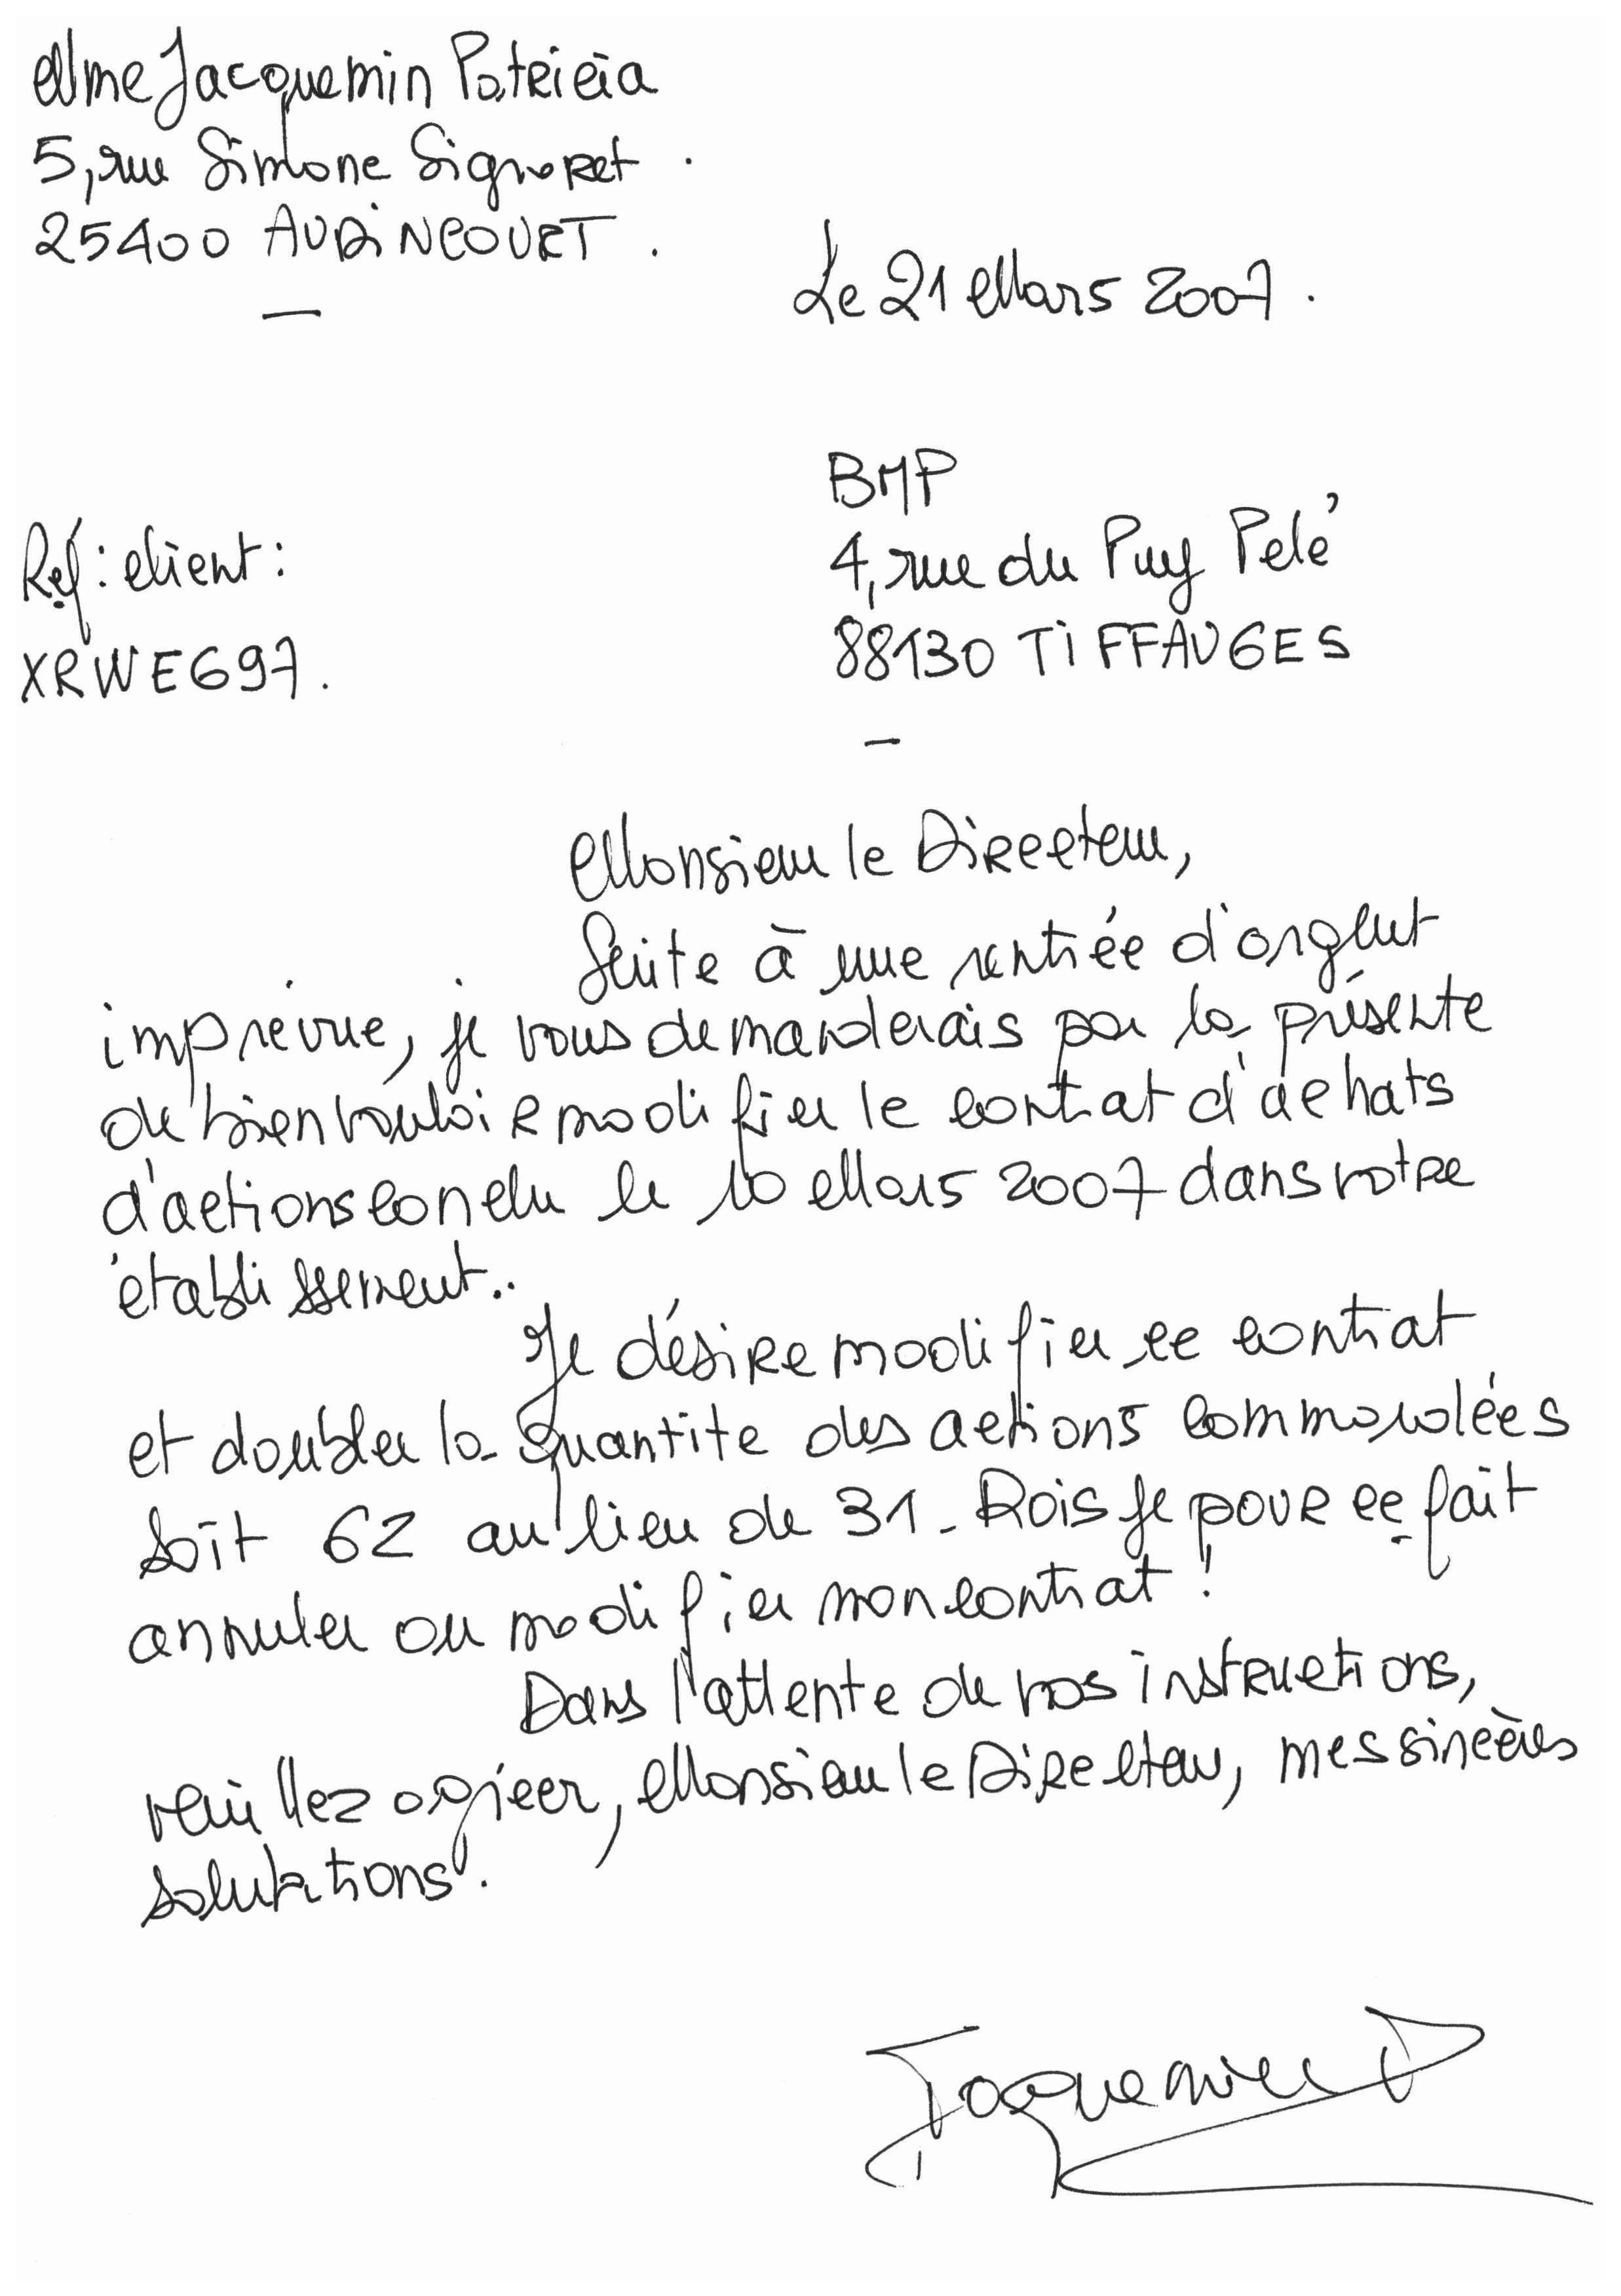 Mme Jacquemin Patricia
5, rue Simone Signoret.
25400 AUDiNCOURT.
Le 21 Mars 2007.
BMP
4, rue du Puy Pelé
88130 TiFFAUGES
Réf: client:
XRWE697.
Monsieur le Directeur,
Suite à une rentrée d'argent
imprévue, je vous demanderais par la présente
de bien vouloir modifier le contrat d'achats
d'actions conclu le 10 Mars 2007 dans votre
établissement..
Je désire modifier ce contrat
et doubler la quantité des actions commandées
soit 62 au lieu de 31. Dois je pour ce fait
annuler ou modifier mon contrat!
Dans l'attente de vos instructions,
veuillez agréer, Monsieur le Directeur, mes sincères
salutations.
Jacquemin P